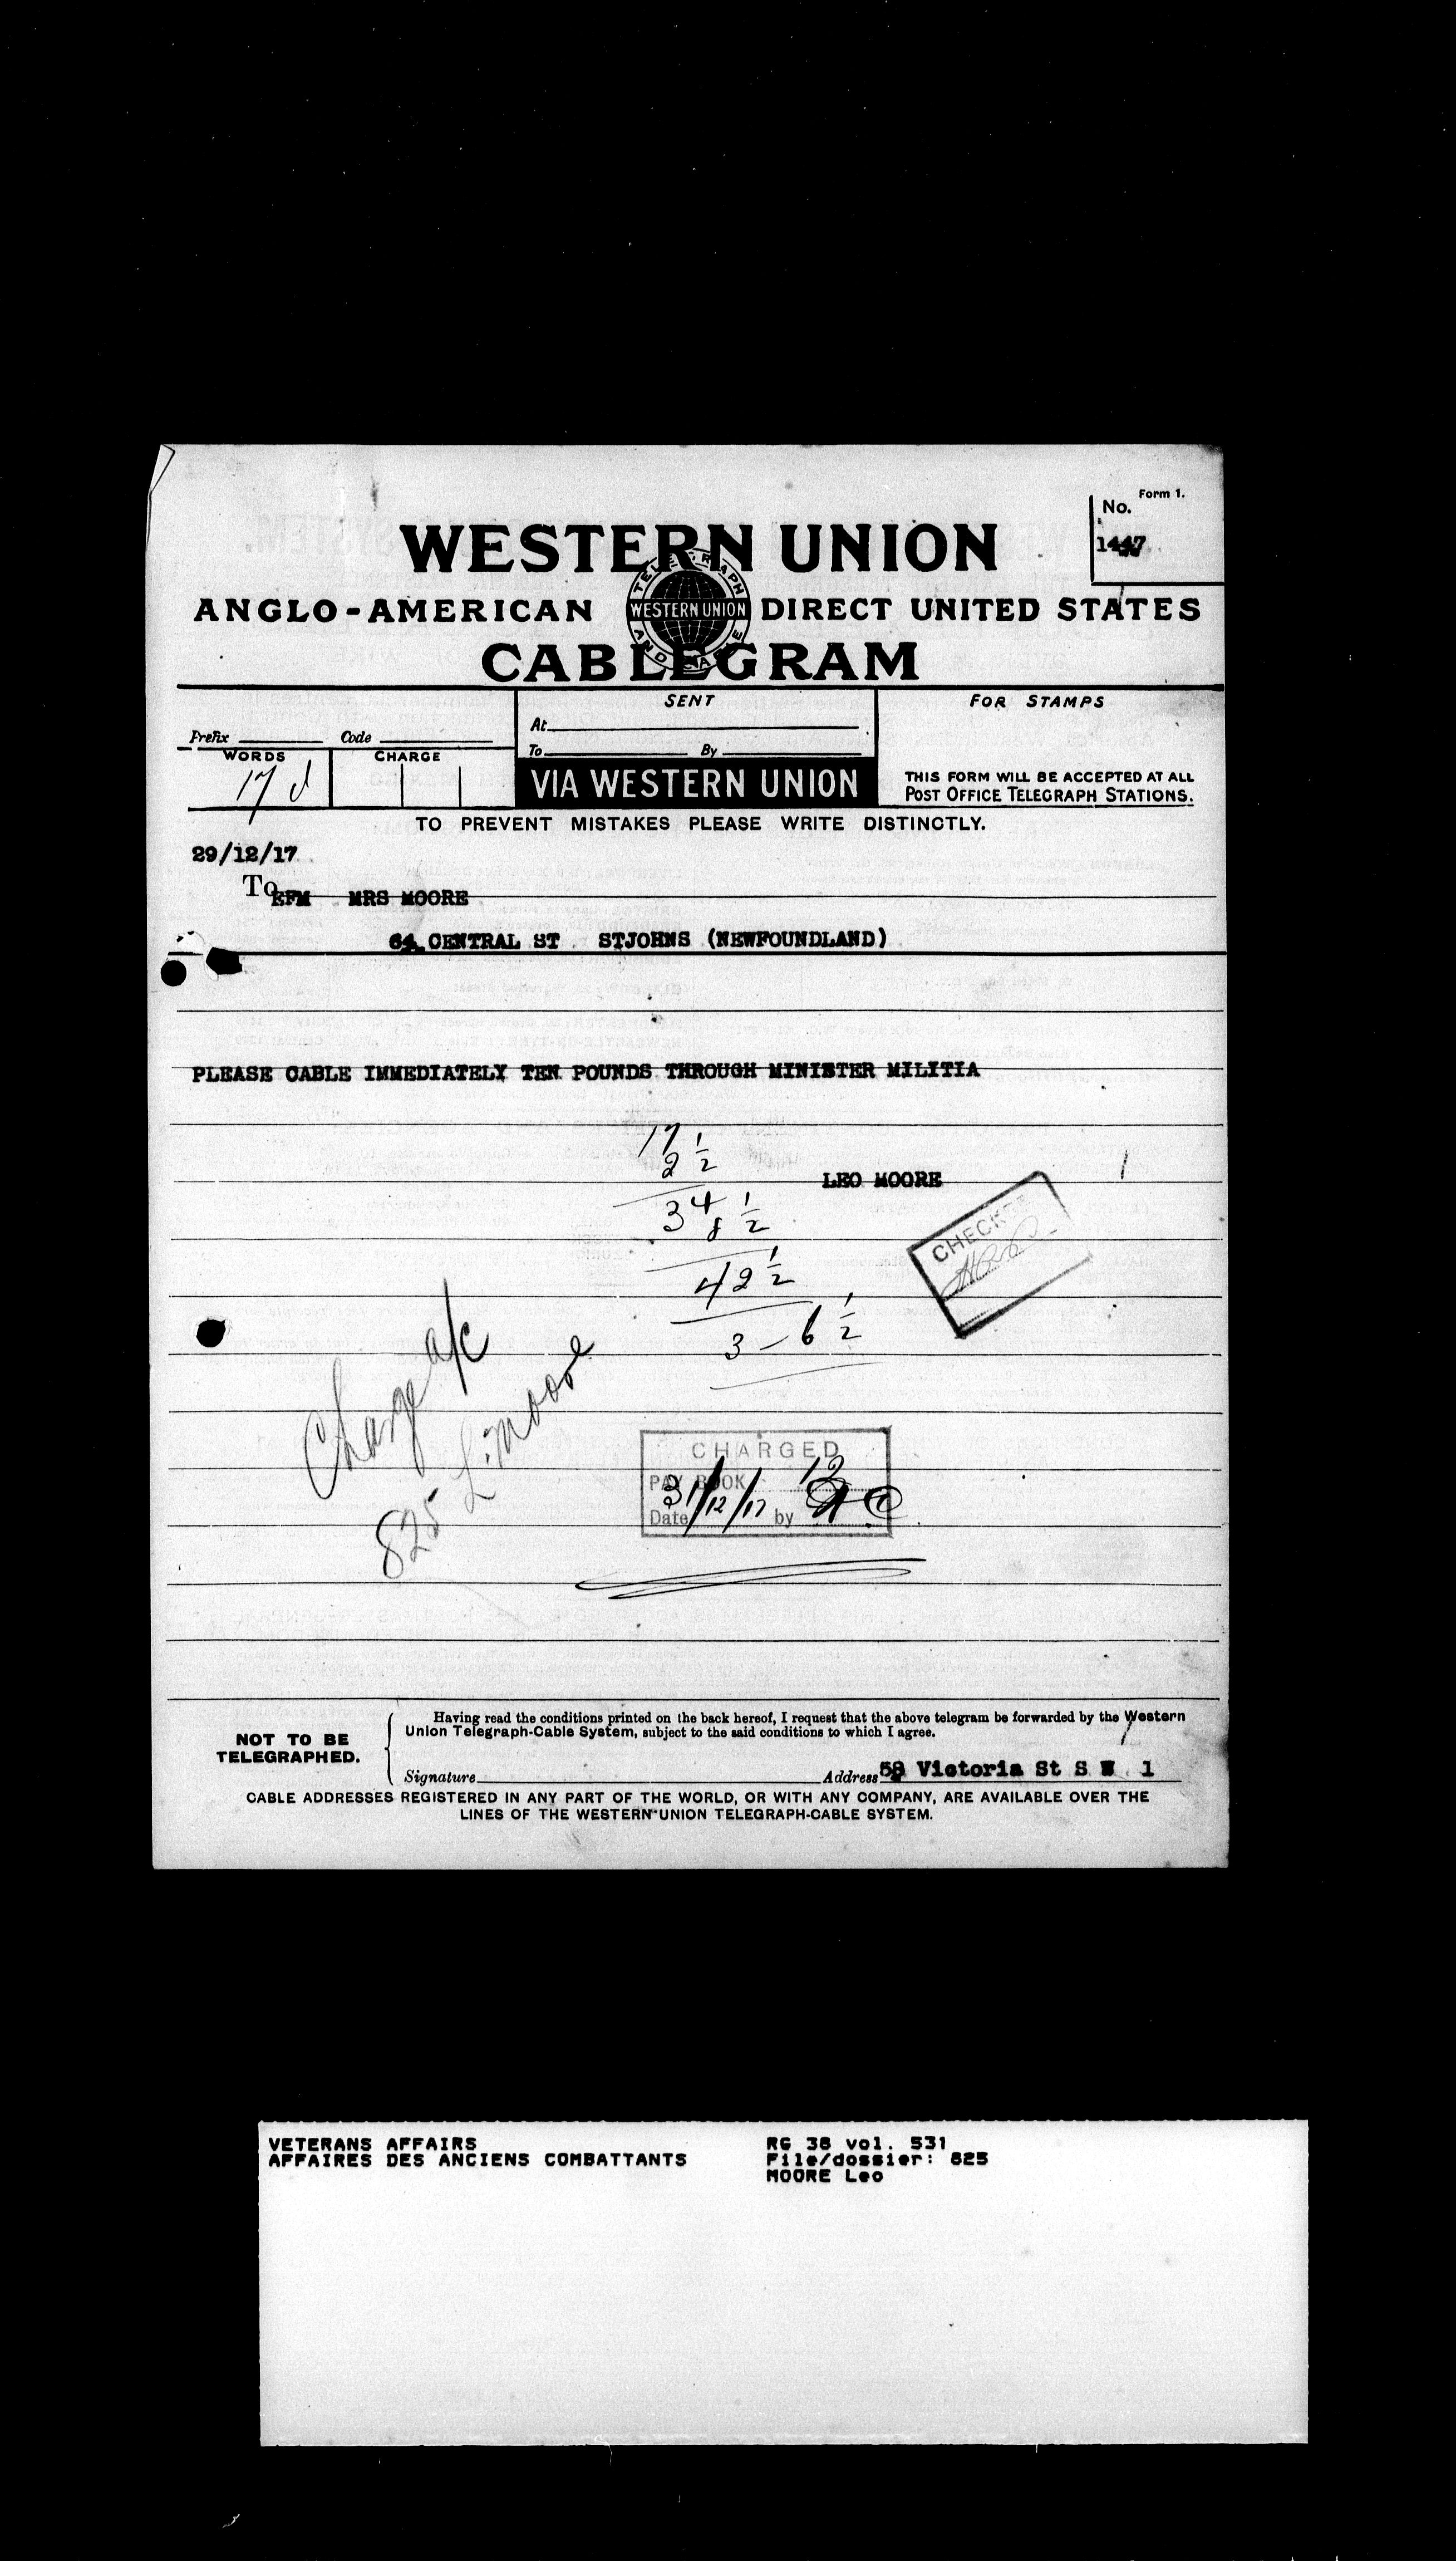 Form 1.
No.
1447
WESTERN UNION
TELEGRAPH AND CABLE
WESTERN UNION
ANGLO-AMERICAN DIRECT UNITED STATES
CABLEGRAM
Prefix Code
WORDS CHARGE
17 d
SENT
At
To By
VIA WESTERN UNION
FOR STAMPS
THIS FORM WILL BE ACCEPTED AT ALL
POST OFFICE TELEGRAPH STATIONS.
TO PREVENT MISTAKES PLEASE WRITE DISTINCTLY.
29/12/17
To EFM MRS MOORE
64 CENTRAL ST STJOHNS (NEWFOUNDLAND)
PLEASE CABLE IMMEDIATELY TEN POUNDS THROUGH MINISTER MILITIA
17
2 1/2
LEO MOORE
34
8 1/2
42 1/2
3 - 6 1/2
CHECKED
Charge a/c
825 L. Moore
CHARGED
PAY BOOK
Date 31/12/17 by
NOT TO BE
TELEGRAPHED.
Having read the conditions printed on the back hereof, I request that the above telegram be forwarded by the Western
Union Telegraph-Cable System, subject to the said conditions to which I agree.
Signature Address 58 Victoria St S W 1
CABLE ADDRESSES REGISTERED IN ANY PART OF THE WORLD, OR WITH ANY COMPANY, ARE AVAILABLE OVER THE
LINES OF THE WESTERN UNION TELEGRAPH-CABLE SYSTEM.
VETERANS AFFAIRS
AFFAIRES DES ANCIENS COMBATTANTS
RG 38 vol. 531
File/dossier: 825
MOORE Leo